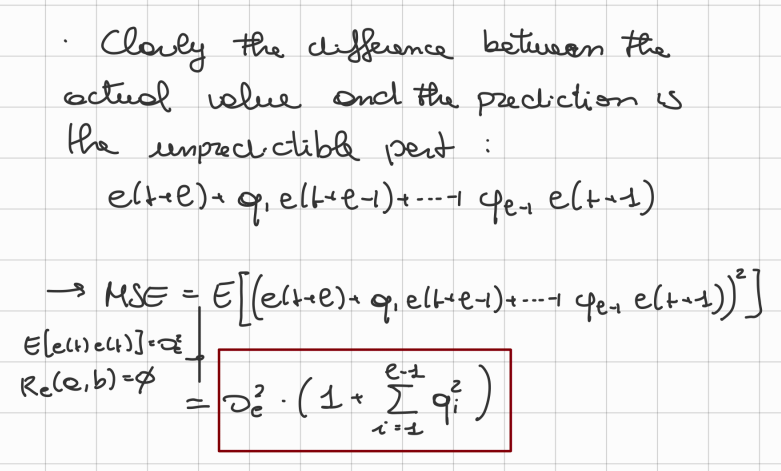 · Clearly the difference between the
actual value and the prediction is
the unpredictible part :
e(t+ℓ) + φ₁ e(t+ℓ-1) + ---- + φ_{ℓ-1} e(t+1)
→ MSE = E[(e(t+ℓ) + φ₁ e(t+ℓ-1) + ---- + φ_{ℓ-1} e(t+1))²]
E[e(t)e(t)] = σₑ²
Rₑ(a,b) = ∅
= σₑ² · (1 + ∑_{i=1}^{ℓ-1} φᵢ²)